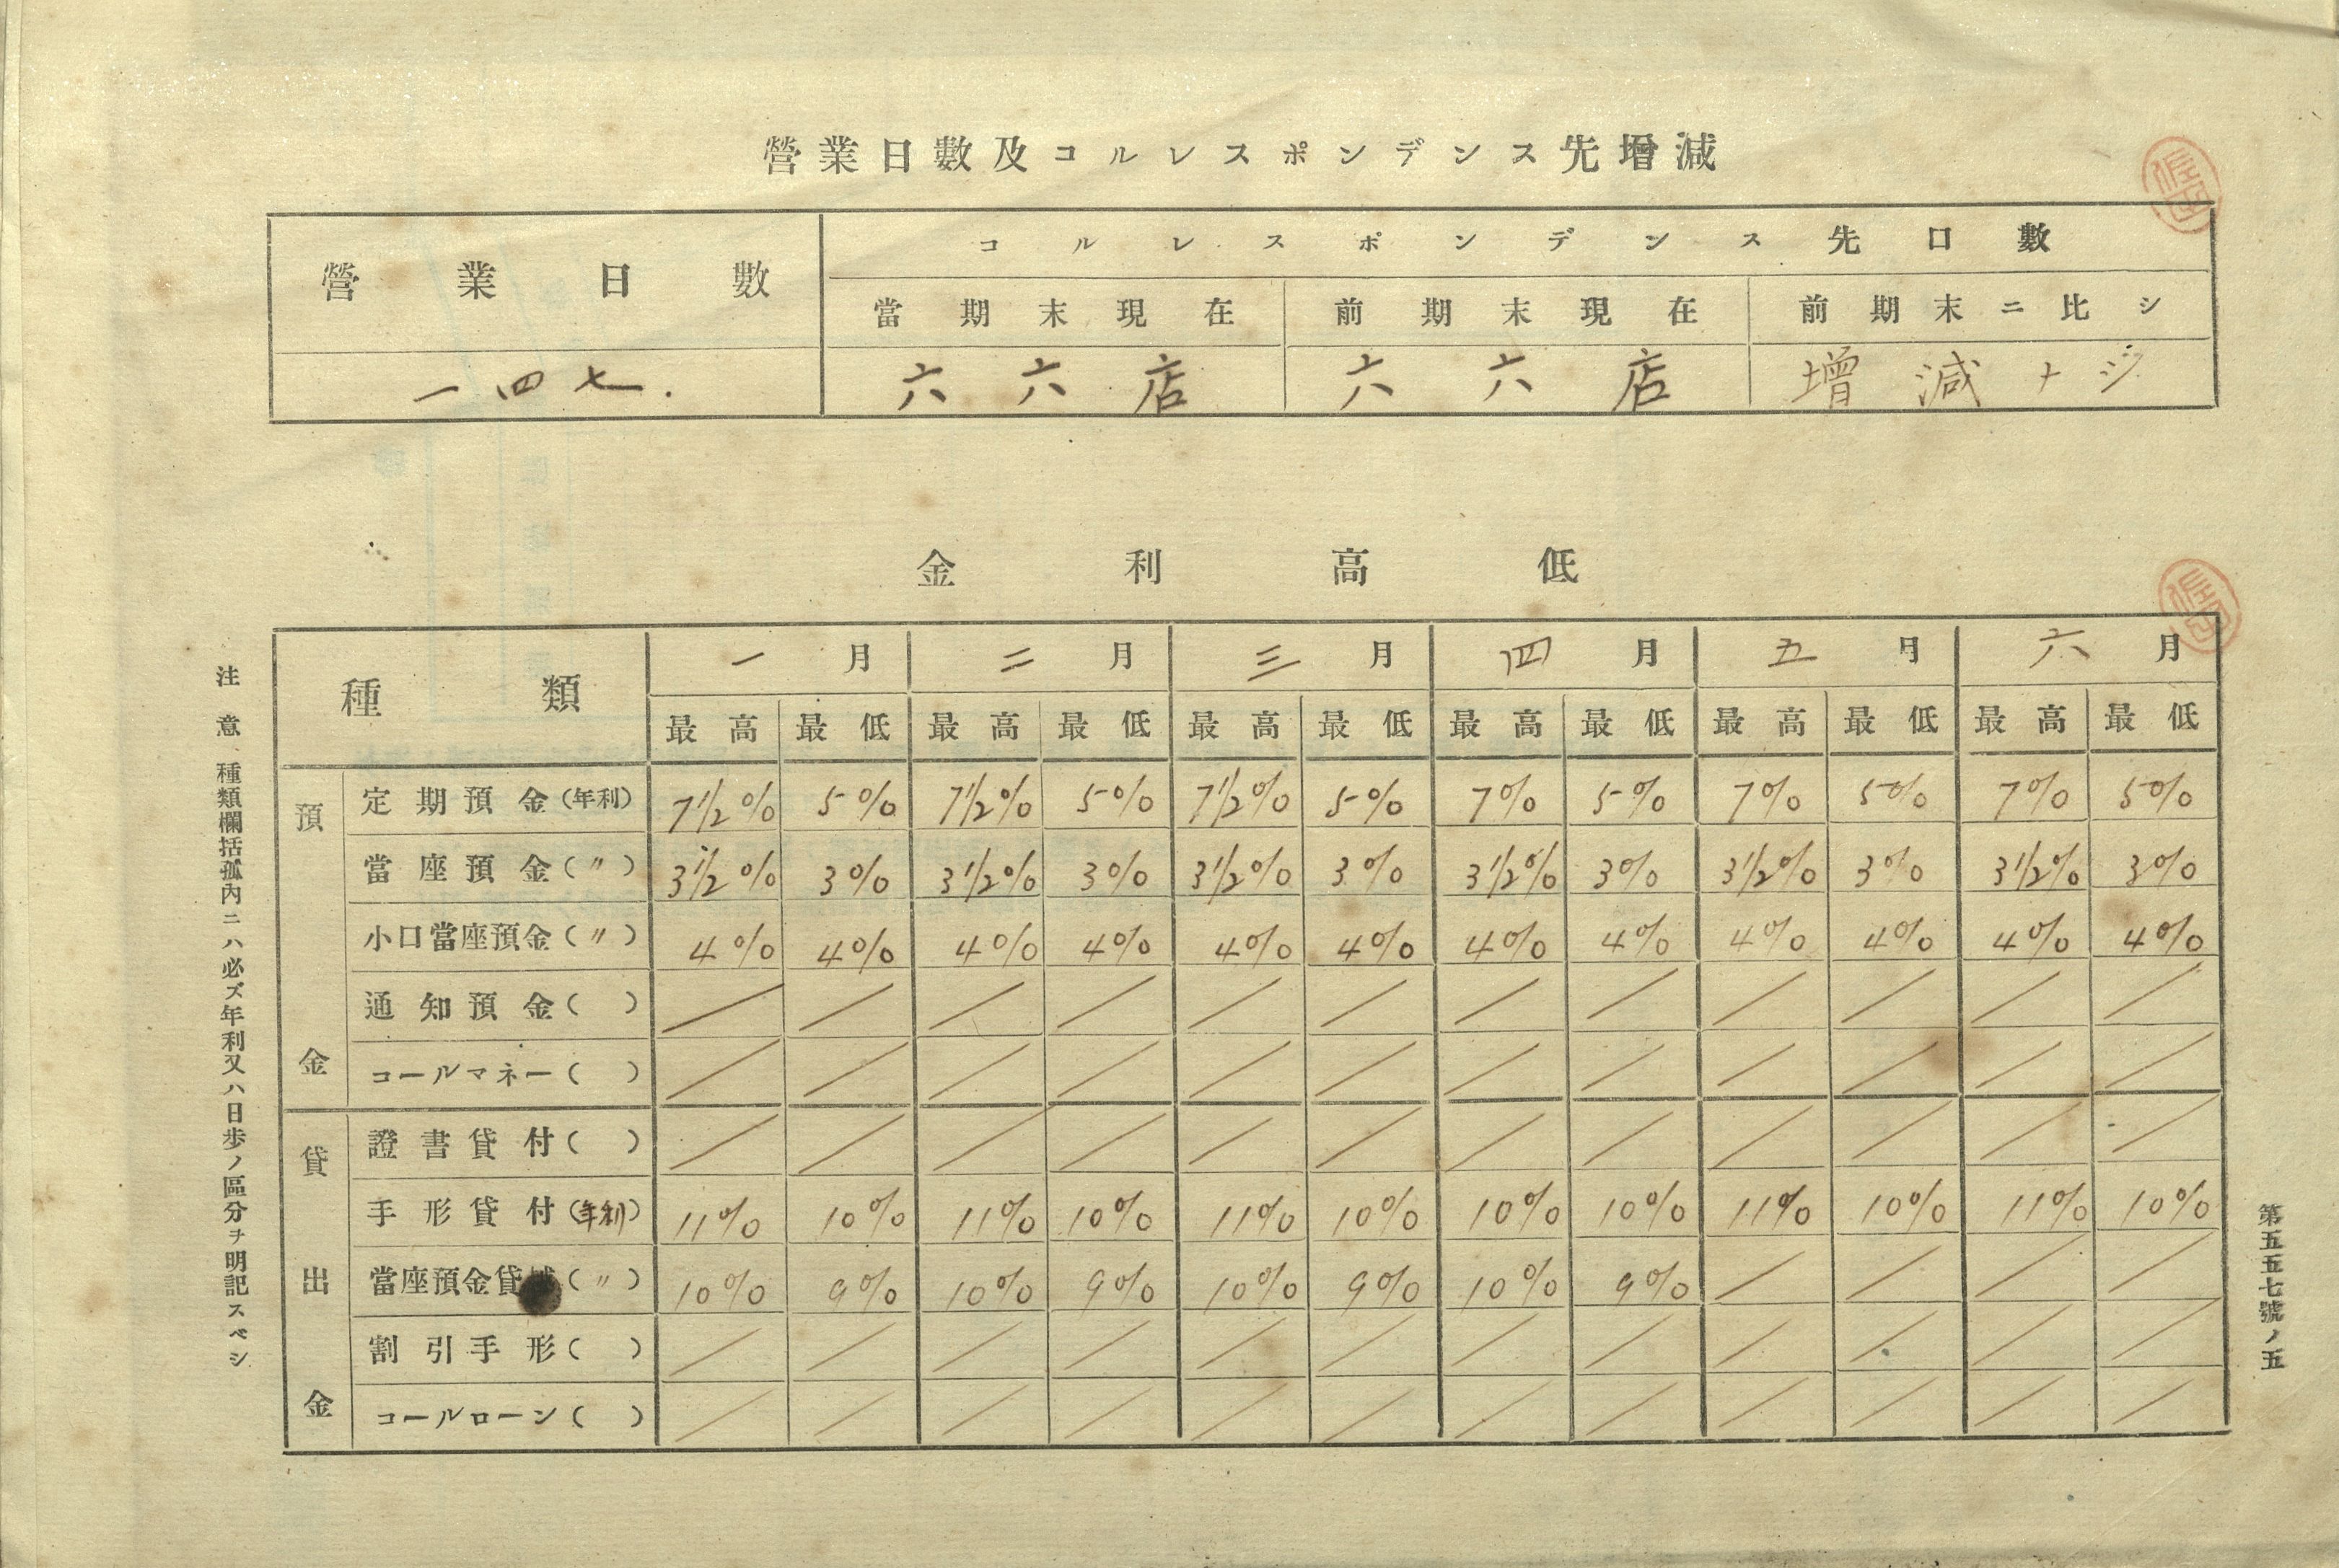 營業日數及コルレスポンデンス先增減
營業日數
コルレスポンデンス先口數
當期末現在 前期末現在 前期末ニ比シ
一四七. 六六店 六六店 增減ナシ
金利高低
種類 一月 二月 三月 四月 五月 六月
最高 最低 最高 最低 最高 最低 最高 最低 最高 最低 最高 最低
預金
定期預金(年利) 7 1/2% 5% 7 1/2% 5% 7 1/2% 5% 7% 5% 7% 5% 7% 5%
當座預金(〃) 3 1/2% 3% 3 1/2% 3% 3 1/2% 3% 3 1/2% 3% 3 1/2% 3% 3 1/2% 3%
小口當座預金(〃) 4% 4% 4% 4% 4% 4% 4% 4% 4% 4% 4% 4%
通知預金( )
コールマネー( )
貸出金
證書貸付( )
手形貸付(年利) 11% 10% 11% 10% 11% 10% 10% 10% 11% 10% 11% 10%
當座預金貸(〃) 10% 9% 10% 9% 10% 9% 10% 9%
割引手形( )
コールローン( )
注意、種類欄括孤內ニハ必ズ年利又ハ日步ノ區分ヲ明記スベシ
第五五七號ノ五